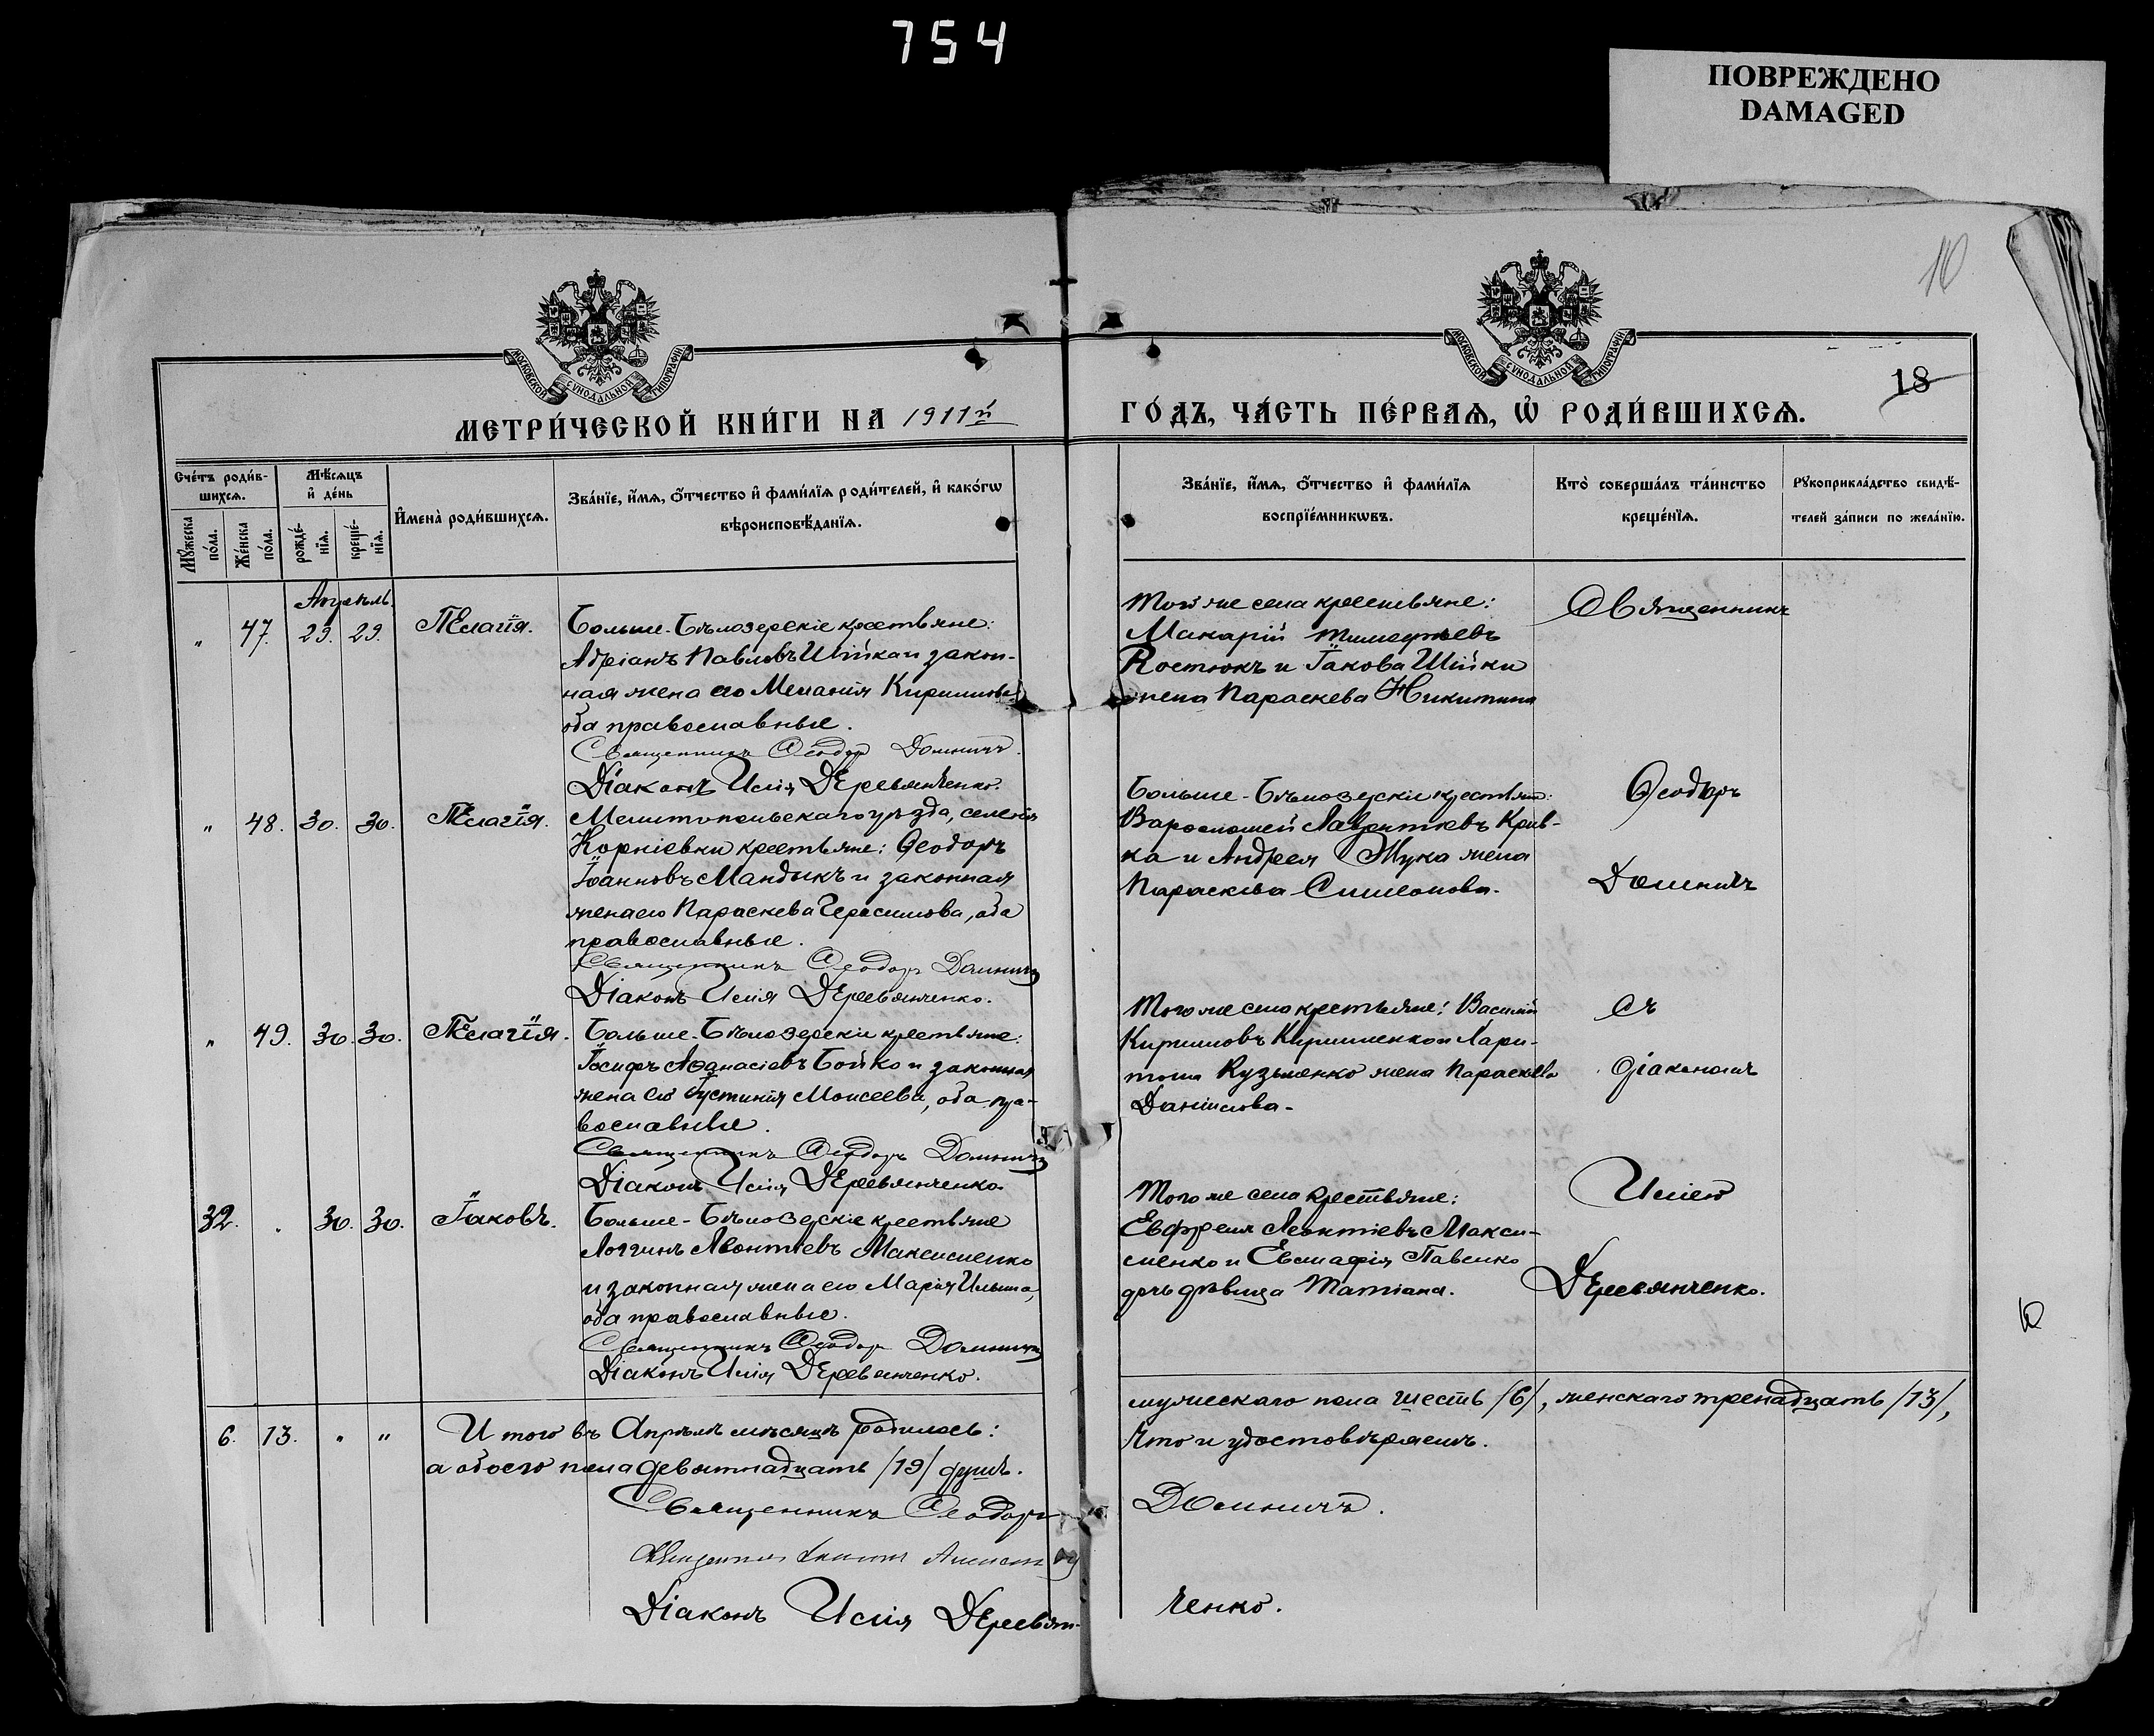 754
ПОВРЕЖДЕНО
DAMAGED
10
18
МОСКОВСКОЙ СѴНОДАЛЬНОЙ ТИПОГРАФІИ
МОСКОВСКОЙ СѴНОДАЛЬНОЙ ТИПОГРАФІИ
МЕТРИ́ЧЕСКОЙ КНИ́ГИ НА 1911й
ГО́ДЪ, ЧА́СТЬ ПЕ́РВАѦ, Ѡ҆ РОДИ́ВШИХСѦ.
Сче́тъ роди́в-
шихсѧ.
Мꙋ́жеска по́ла.
Же́нска по́ла.
Мѣ́сѧцъ
и҆ де́нь
рожде́-
нїѧ.
креще́-
нїѧ.
И҆мена̀ роди́вшихсѧ.
Зва́нїе, и҆́мѧ, о҆́тчество и҆ фами́лїѧ роди́телей, и҆ како́гѡ
вѣроисповѣ́данїѧ.
Зва́нїе, и҆́мѧ, о҆́тчество и҆ фами́лїѧ
воспрїе́мникѡвъ.
Кто̀ соверша́лъ та́инство
креще́нїѧ.
Рꙋкоприкла́дство свидѣ́-
телей за́писи по жела́нїю.
Апрѣль.
" 47. 29. 29. Пелагія.
Больше-Бѣлозерскіе крестьяне:
Адріанъ Павловъ Шійка и закон-
ная жена его Меланія Кириллова
оба православные.
Священникъ Ѳеодоръ Домничъ.
Діаконъ Исаія Деревянченко.
Того же села крестьяне:
Макарій Тимоѳеевъ
Костюкъ и Іакова Шійки
жена Параскева Никитина
" 48. 30. 30. Пелагія.
Мелитопольскаго уѣзда, селенія
Корніевки крестьяне: Ѳеодоръ
Іоанновъ Мандыкъ и законная
жена его Параскева Герасимова, оба
православные.
Священникъ Ѳеодоръ Домничъ
Діаконъ Исаія Деревянченко.
Больше-Бѣлозерскіе крестьяне:
Варѳоломей Лаврентіевъ Крив-
ка и Андрея Жука жена
Параскева Симеонова.
" 49. 30. 30. Пелагія.
Больше-Бѣлозерскіе крестьяне:
Іосифъ Аѳанасіевъ Бойко и законная
жена его Іустинія Моисеева, оба пра-
вославные.
Священникъ Ѳеодоръ Домничъ
Діаконъ Исаія Деревянченко.
Того же села крестьяне: Василій
Кирилловъ Кириленко и Хари-
тона Кузьменко жена Параскева
Даніилова.
32. . 30. 30. Іаковъ.
Больше-Бѣлозерскіе крестьяне
Логгинъ Леонтіевъ Максименко
и законная жена его Марія Ильина,
оба православные.
Священникъ Ѳеодоръ Домничъ
Діаконъ Исаія Деревянченко.
Того же села крестьяне:
Ефрем Леонтіевъ Макси-
менко и Павленко
дочь дѣвица Татіана.
Священникъ
Ѳеодоръ
Домничъ
съ
діакономъ
Исаіею
Деревянченко.
6. 13. " " Итого въ Апрѣлѣ мѣсяцѣ родилось:
мужескаго пола шесть /6/, женскаго тренадцать /13/,
а обоего пола девятнадцать /19/ душъ.
Что и удостовѣряемъ.
Священникъ Ѳеодоръ Домничъ.
Священникъ
Діаконъ Исаія Деревян-
ченко.